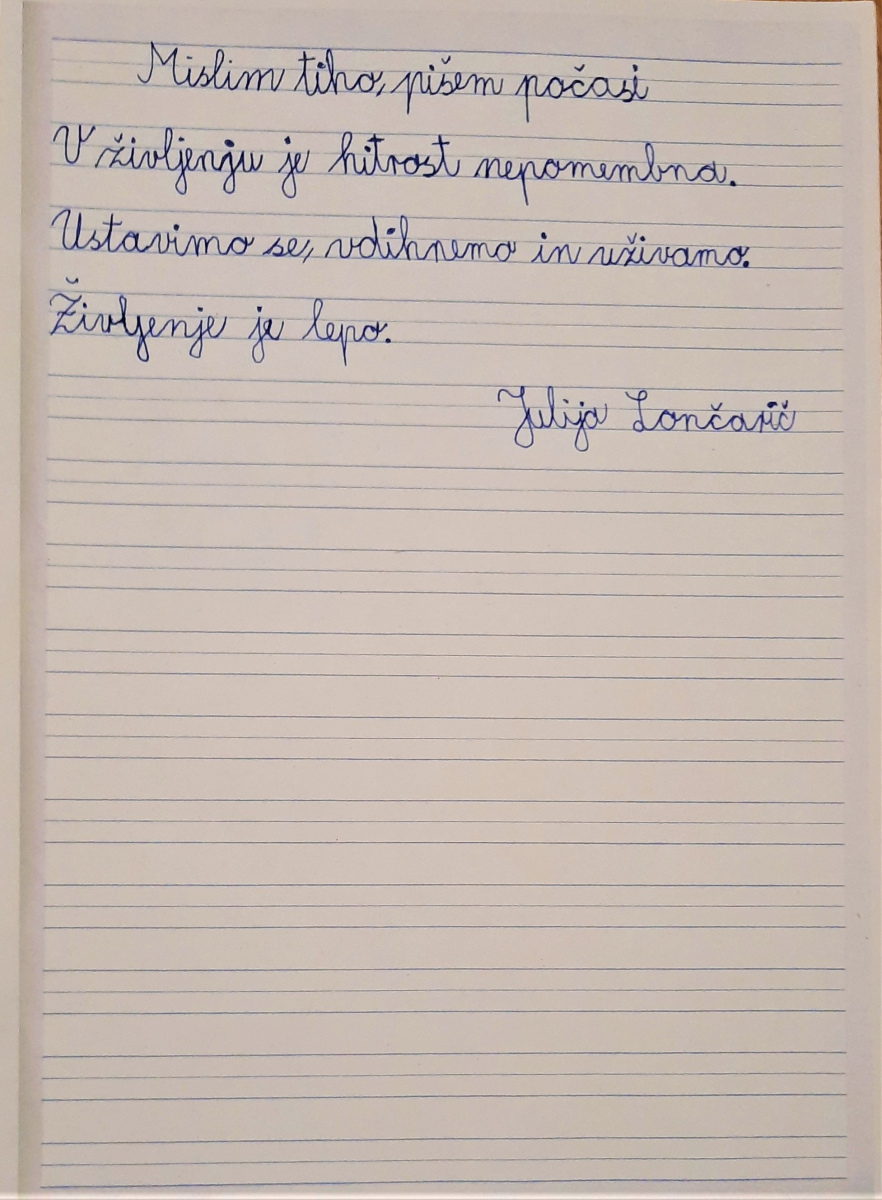 Mislim tiho, pišem počasi
V življenju je hitrost nepomembna.
Ustavimo se, vdihnemo in uživamo.
Življenje je lepo.
Julija Lončarič